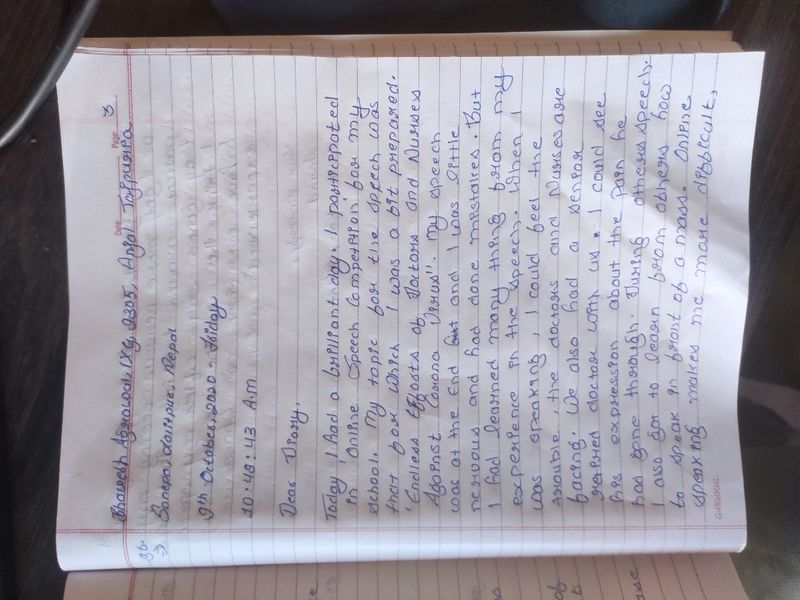 Date: Page: 3
Bhawesh Agrawal, IXG, 2305, Anjal Tappunpa
Q6.
⇒ Banepa, Lalitpur, Nepal
9th October, 2020 - Friday
10:48:43 A.M
Dear Diary,
Today, I had a brilliant day. I participated
in Online Speech Competition for my
school. My topic for the speech was
that for which I was a bit prepared.
'Endless Efforts of Doctors and Nurses
Against Corona Virus". My speech
was at the End and I was little
nervous and had done mistakes. But
I had learned many thing from my
experience in the speech. When I
was speaking, I could feel the
trouble, the doctors and Nurses are
facing. We also had a senior
retired doctor with us. I could see
his expression about the pain he
had gone through. During others speech.
I also got to learn from others how
to speak in front of a mass. Online
speaking makes me more difficult,